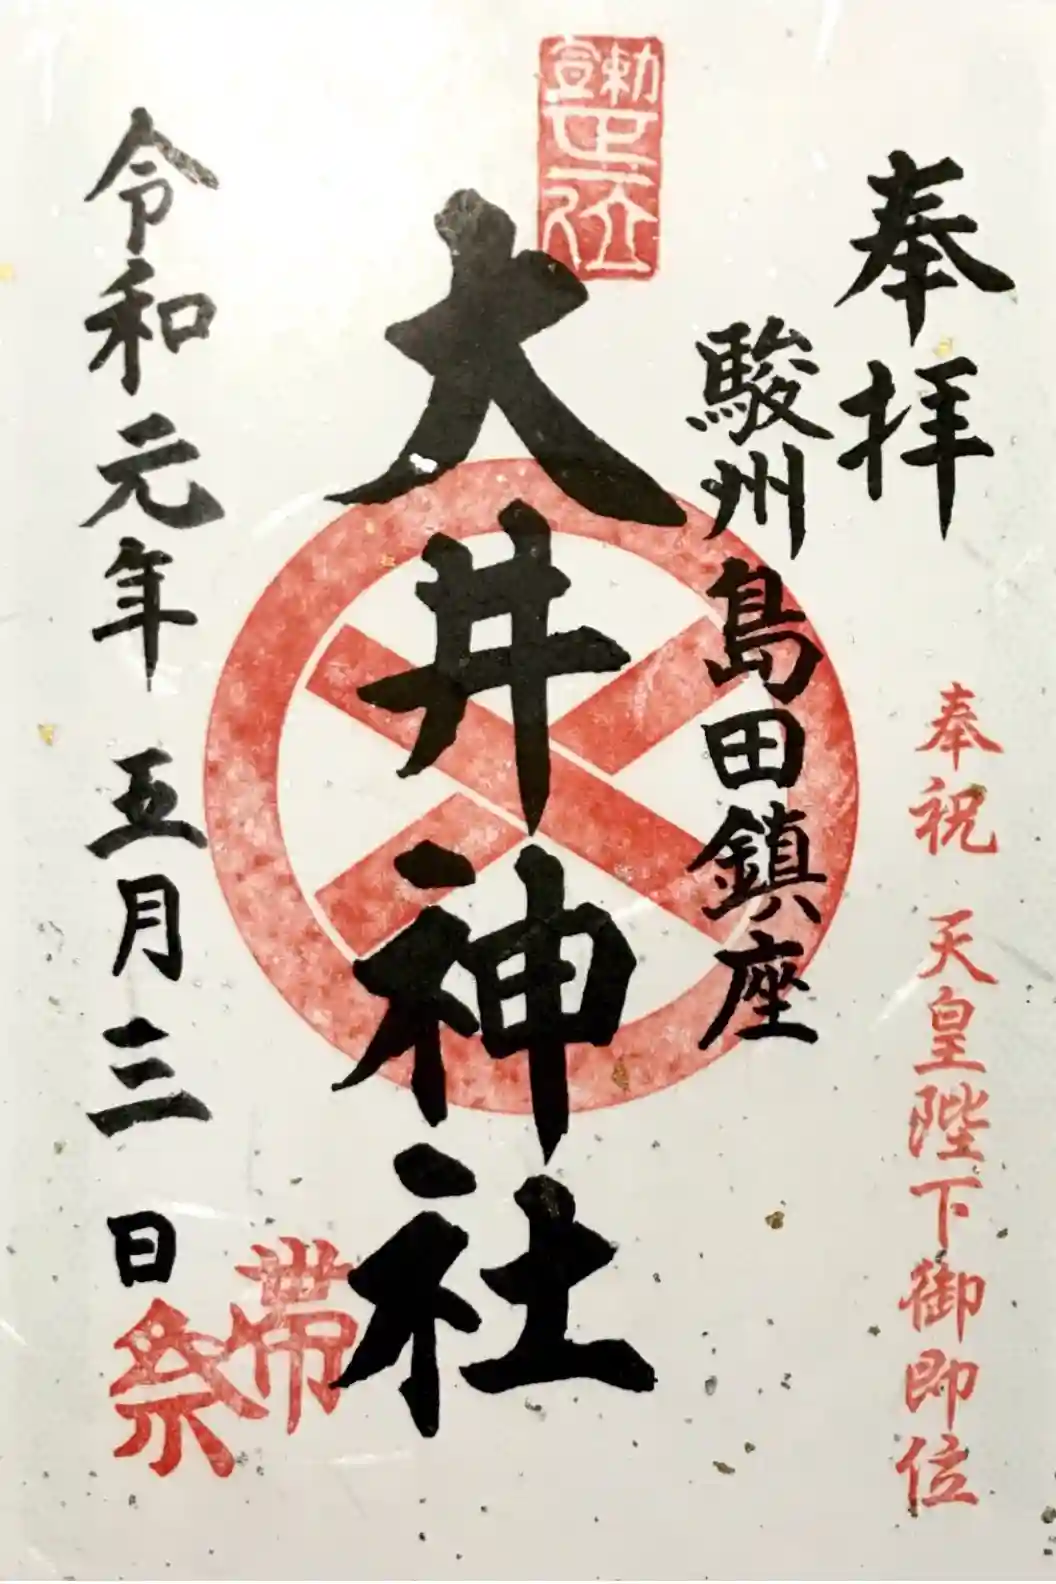 奉拝
奉祝 天皇陛下御即位
駿州島田鎮座
大井神社
令和元年 五月三日
帯
祭